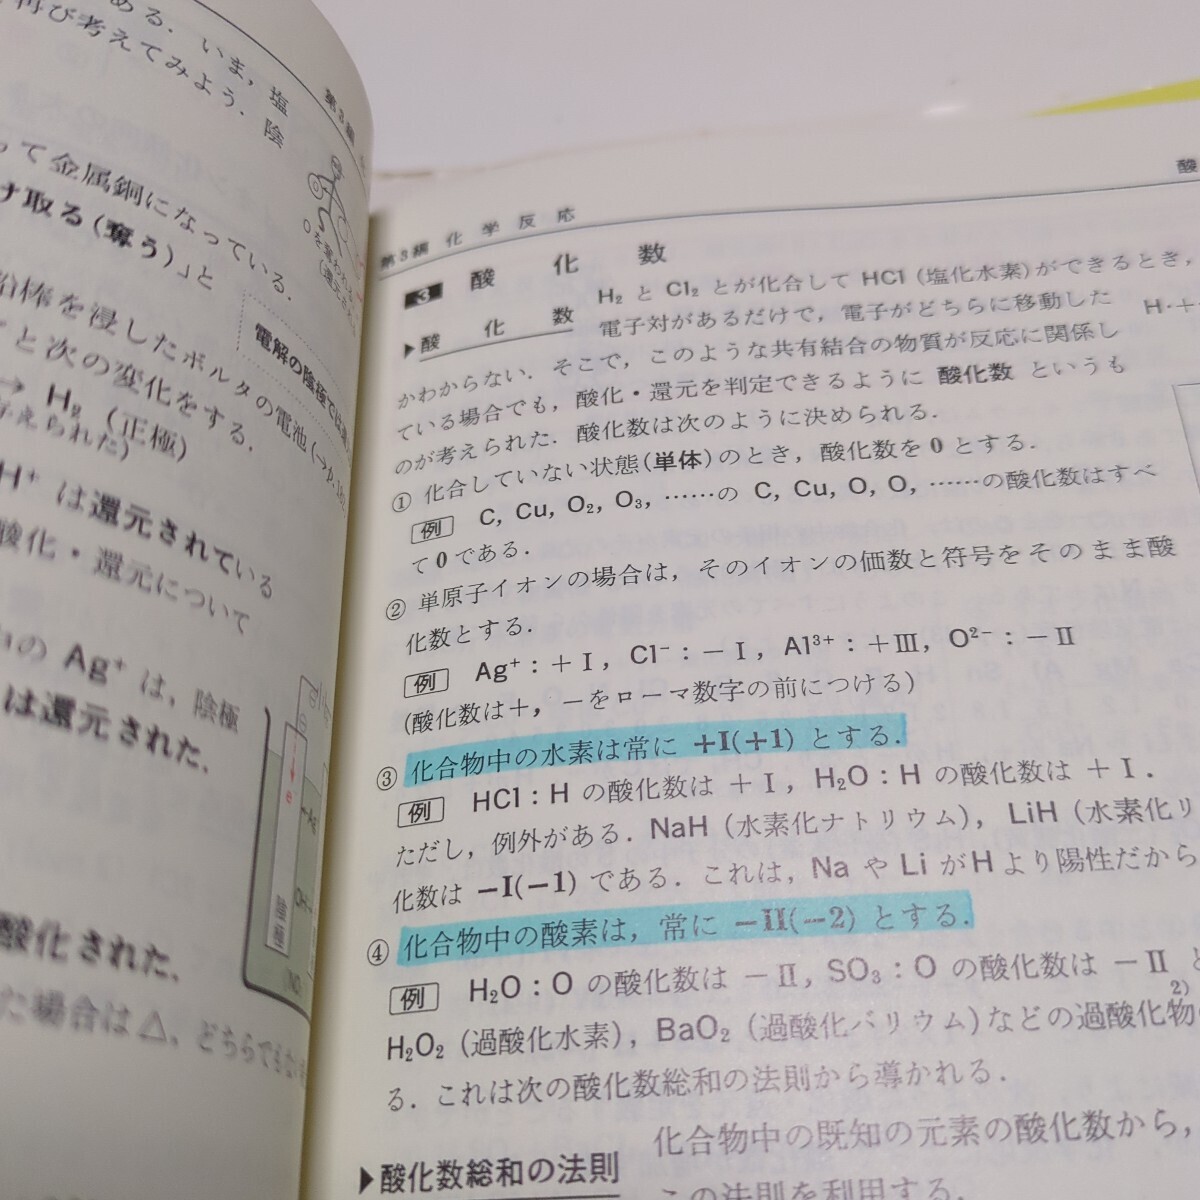 ある．いま，塩
再び考えてみよう．陰
って金属銅になっている．
け取る(奪う)」と
鉛棒を浸したボルタの電池(→p.
と次の変化をする．
→ H₂ (正極)
与えられた)
H⁺ は還元されている
酸化・還元について
の Ag⁺ は，陰極
は還元された．
酸化された．
た場合は△，どちらでもない
電解の陰極では還
陰極
第3編 化学反応
酸
3 酸化数
▶酸化数
H₂ と Cl₂ とが化合して HCl (塩化水素)ができるとき，
電子対があるだけで，電子がどちらに移動した
H・＋
かわからない．そこで，このような共有結合の物質が反応に関係し
ている場合でも，酸化・還元を判定できるように 酸化数 というも
のが考えられた．酸化数は次のように決められる．
① 化合していない状態(単体)のとき，酸化数を 0 とする．
例 C, Cu, O₂, O₃, ……の C, Cu, O, O, ……の酸化数はすべ
て 0 である．
② 単原子イオンの場合は，そのイオンの価数と符号をそのまま酸
化数とする．
例 Ag⁺：＋Ⅰ，Cl⁻：－Ⅰ，Al³⁺：＋Ⅲ，O²⁻：－Ⅱ
(酸化数は＋，－をローマ数字の前につける)
③ 化合物中の水素は常に ＋I(＋1) とする．
例 HCl：H の酸化数は ＋Ⅰ，H₂O：H の酸化数は ＋Ⅰ．
ただし，例外がある．NaH (水素化ナトリウム)，LiH (水素化リ
化数は －I(－1) である．これは，Na や Li が H より陽性だから
④ 化合物中の酸素は，常に －II(－2) とする．
例 H₂O：O の酸化数は －Ⅱ，SO₃：O の酸化数は －Ⅱ
2)
H₂O₂ (過酸化水素)，BaO₂ (過酸化バリウム)などの過酸化物
る．これは次の酸化数総和の法則から導かれる．
▶酸化数総和の法則
化合物中の既知の元素の酸化数から，
この法則を利用する．